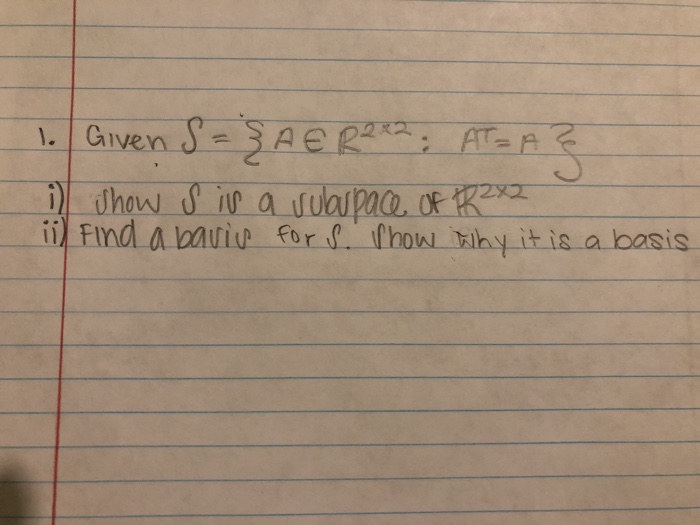 1. Given S = { A ∈ R²ˣ² : Aᵀ = A }
i) Show S is a subspace of ℝ²ˣ²
ii) Find a basis for S. Show why it is a basis